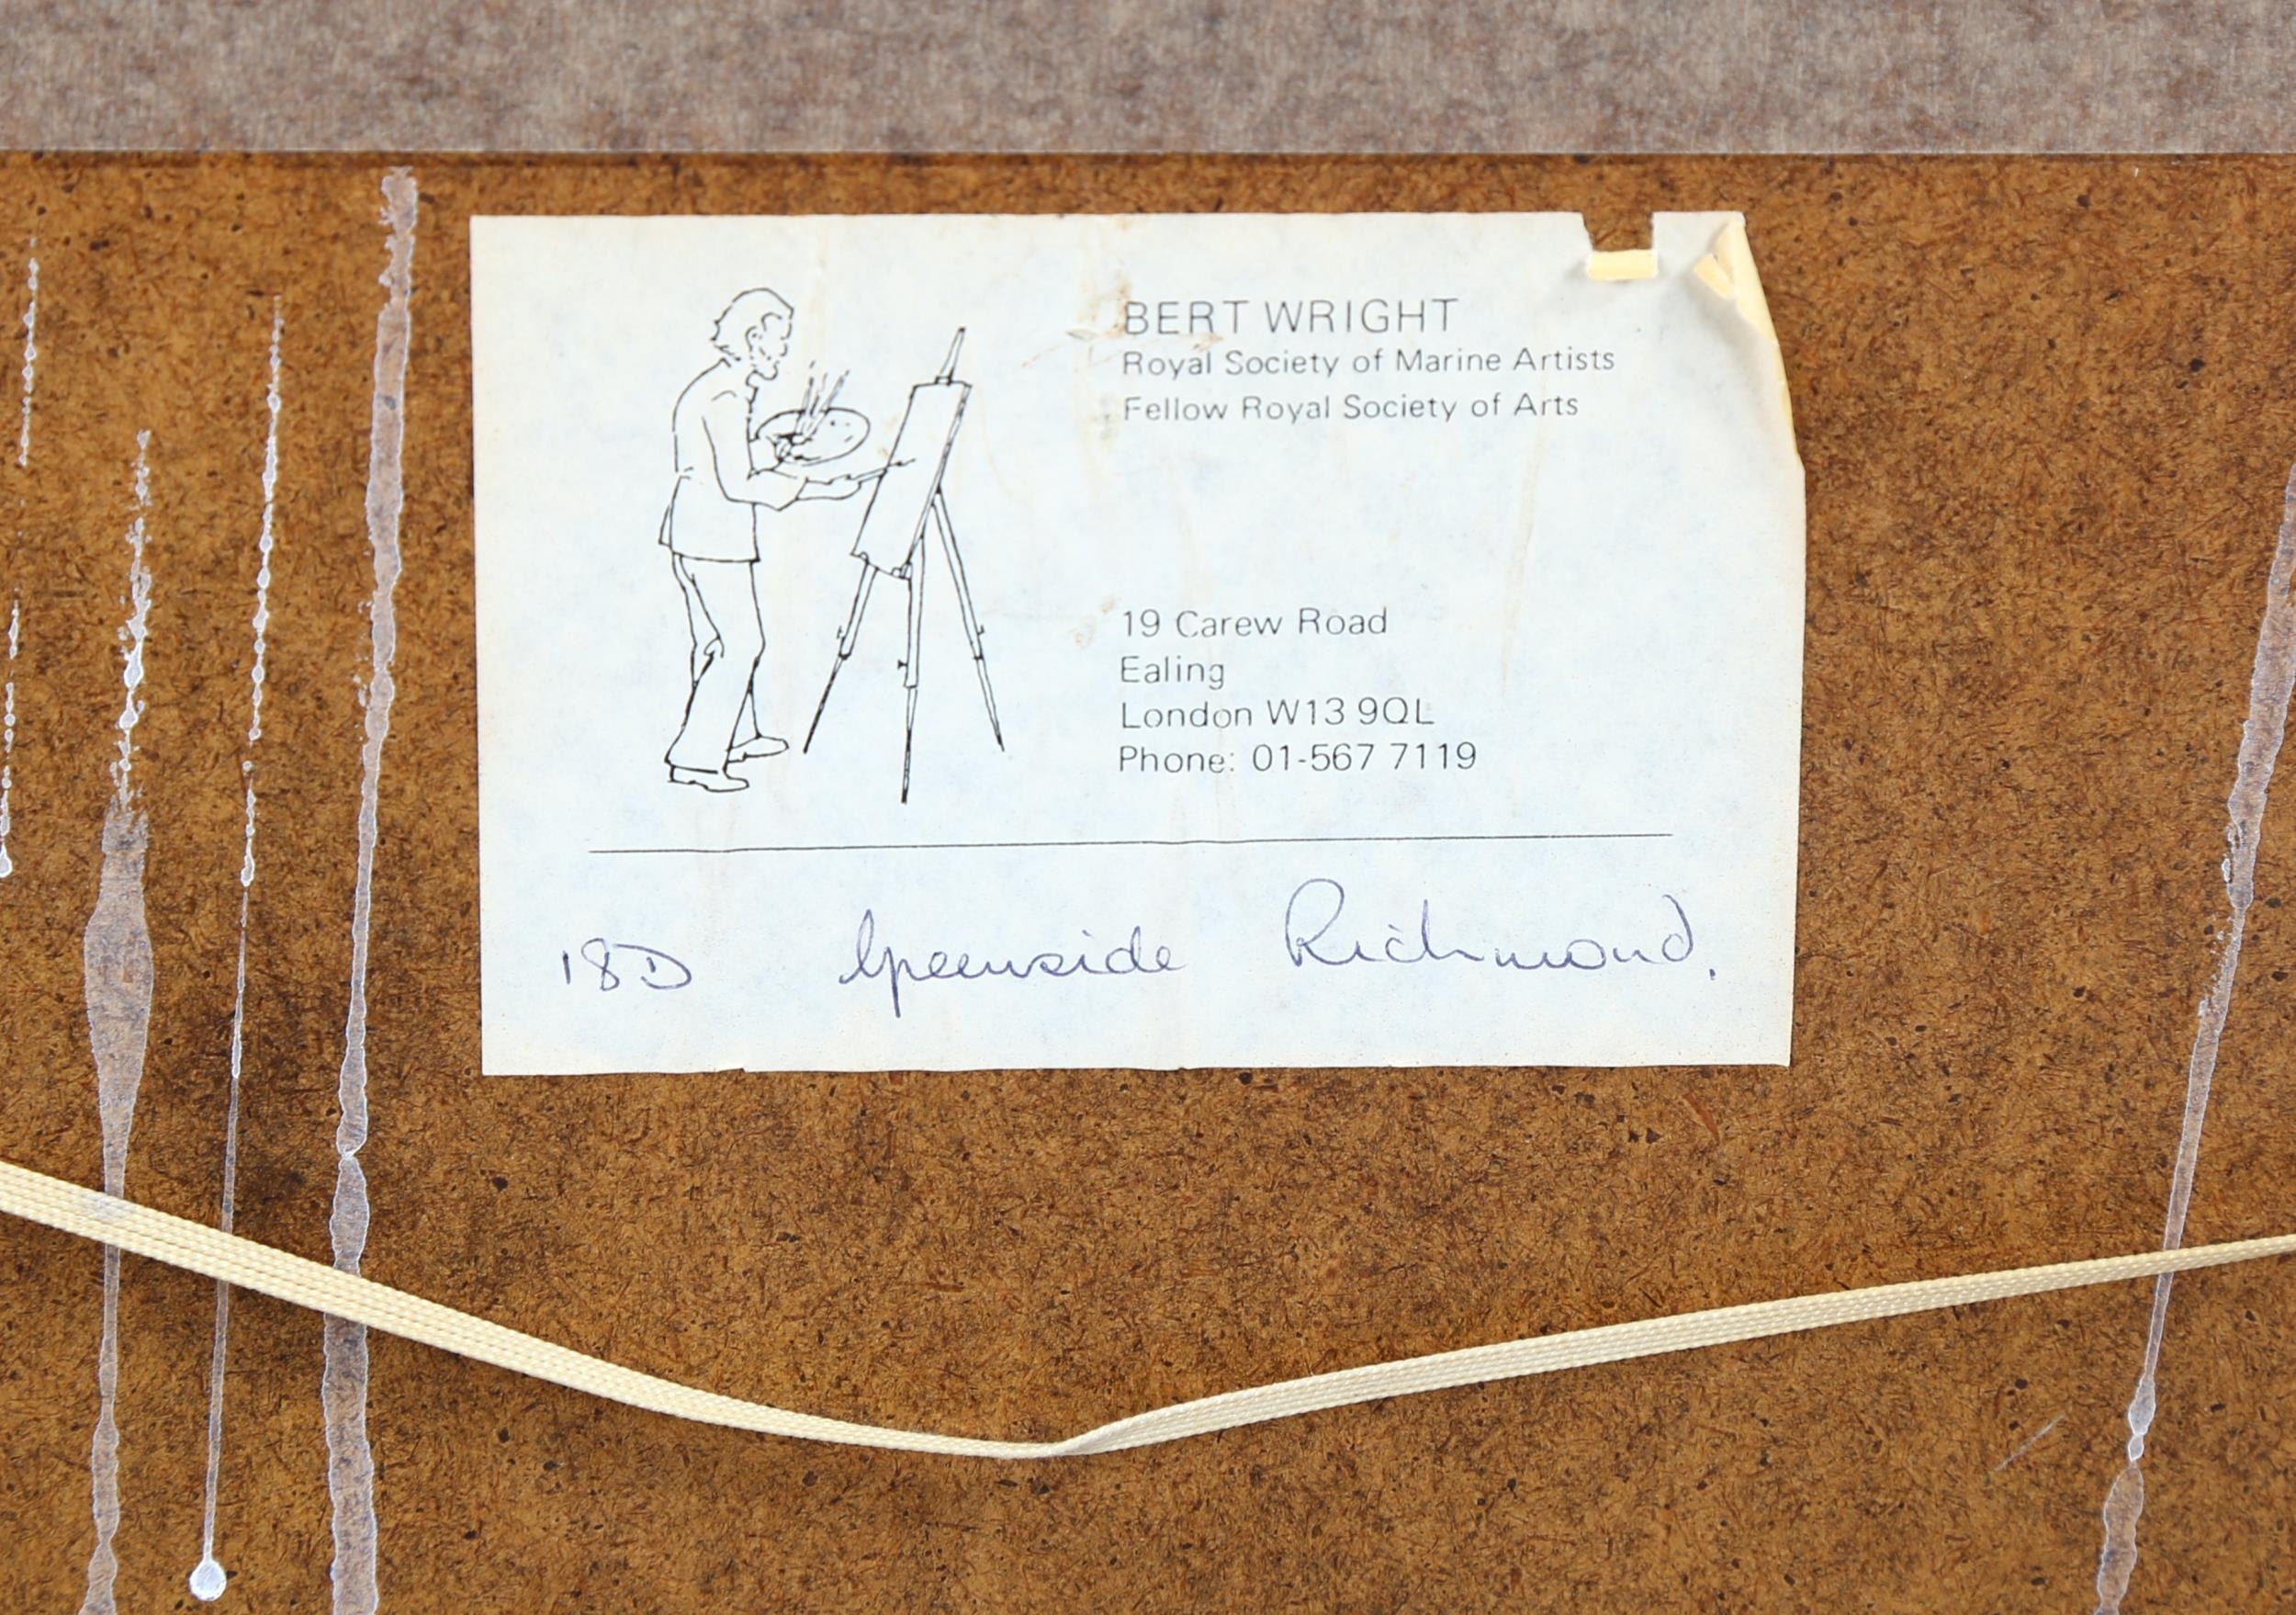 BERT WRIGHT
Royal Society of Marine Artists
Fellow Royal Society of Arts
19 Carew Road
Ealing
London W13 9QL
Phone: 01-567 7119
18D Greenside Richmond.